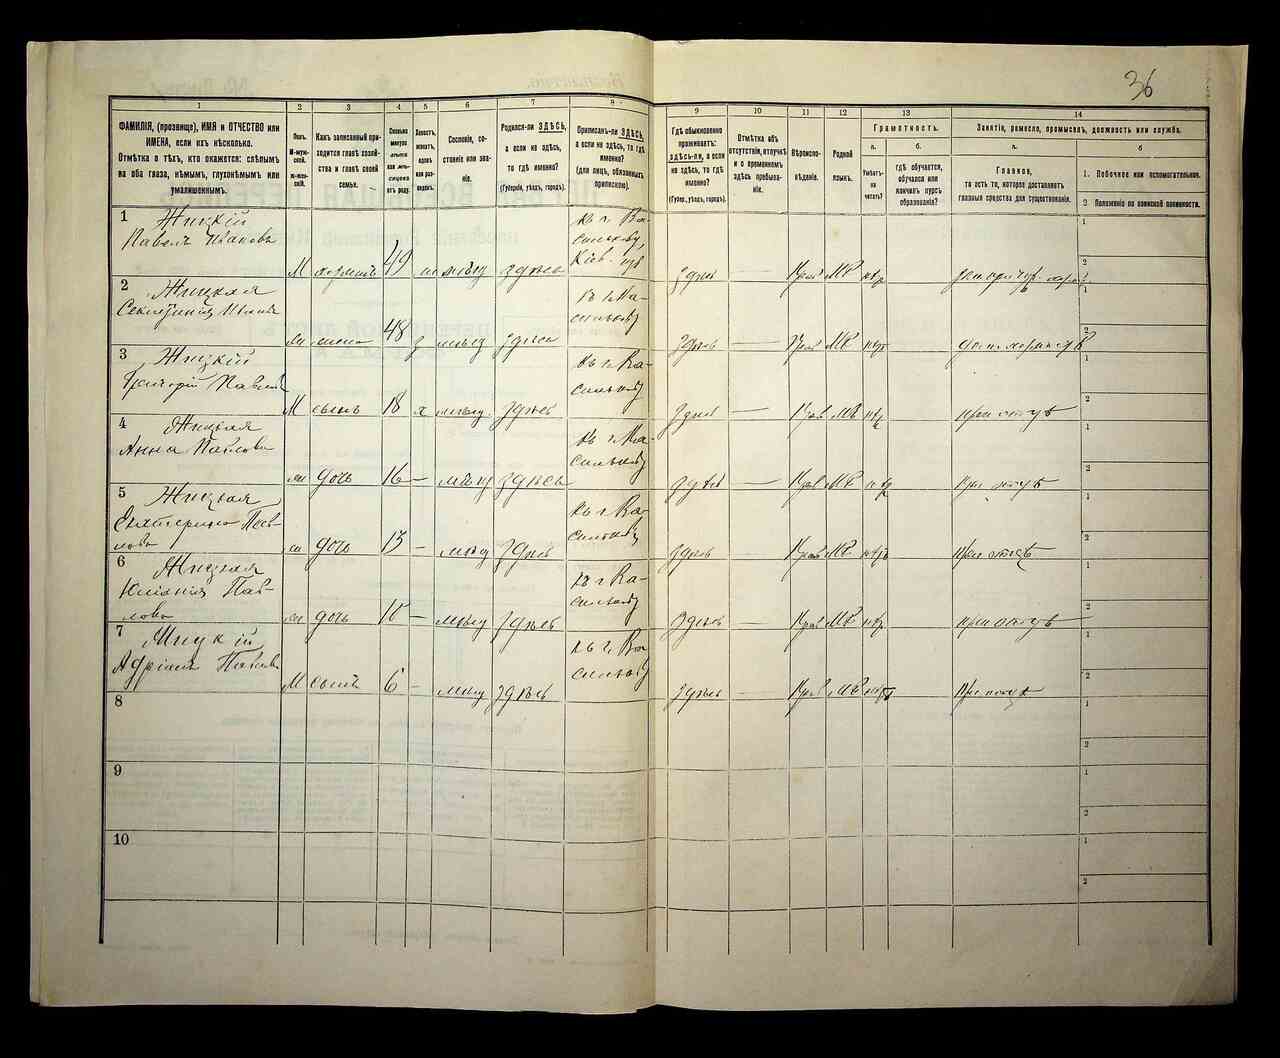 36
1
2
3
4
5
6
7
8
9
10
11
12
13
14
ФАМИЛІЯ, (прозвище), ИМЯ и ОТЧЕСТВО или
ИМЕНА, если ихъ нѣсколько.
Отмѣтка о тѣхъ, кто окажется: слѣпымъ
на оба глаза, нѣмымъ, глухонѣмымъ или
умалишеннымъ.
Полъ.
М-муж-
ской.
Ж-жен-
скій.
Какъ записанный при-
ходится главѣ хозяй-
ства и главѣ своей
семьи.
Сколько
минуло
лѣтъ
или мѣс-
яцевъ
отъ роду.
Холостъ,
женатъ,
вдовъ
или раз-
веденъ.
Сословіе, со-
стояніе или зва-
ніе.
Родился-ли ЗДѢСЬ,
а если не здѣсь,
то гдѣ именно?
(Губернія, уѣздъ, городъ).
Приписанъ-ли ЗДѢСЬ,
а если не здѣсь, то гдѣ
именно?
(для лицъ, обязанныхъ
припискою).
Гдѣ обыкновенно
проживаетъ:
здѣсь-ли, а если
не здѣсь, то гдѣ
именно?
(Губер., уѣздъ, городъ).
Отмѣтка объ
отсутствіи, отлучкѣ
и о временномъ
здѣсь пребыва-
ніи.
Вѣроиспо-
вѣданіе.
Родной
языкъ.
Грамотность.
а.
Умѣетъ-
ли
читать?
б.
гдѣ обучается,
обучался или
кончилъ курсъ
образованія?
Занятіе, ремесло, промыселъ, должность или служба.
а.
Главное,
то есть то, которое доставляетъ
главныя средства для существованія.
б
1. Побочное или вспомогательное.
2 Положеніе по воинской повинности.
1 Жицкій
Павелъ Ивановъ
М хозяинъ 49 здѣсь
къ г. Ва-
силькову,
Кіев. губ
здѣсь — Прав МР нѣт
2 Жицкая
жена 48 ж мѣщ здѣсь
къ г Ва-
силькову
здѣсь — Прав МР нѣт
3 Жицкій
Григорій Павловъ
М сынъ 18 х мѣщ. здѣсь
къ г. Ва-
силькову
здѣсь — Прав МР нѣт при отцѣ
4 Жицкая
Анна Павлова
ж дочь 16 — мѣщ здѣсь
къ г. Ва-
силькову
здѣсь — Прав МР нѣт При отцѣ
5 Жицкая
Екатерина Пав-
лова
ж дочь 13 — мѣщ здѣсь
къ г. Ва-
силькову
здѣсь — Прав МР нѣтъ При отцѣ
6 Жицкая
Пав-
лова
ж дочь 10 — мѣщ здѣсь
къ г Ва-
силькову
здѣсь — Прав МР нѣт при отцѣ
7 Жицкій
Адріанъ Павловъ
М сынъ 6 — мѣщ здѣсь
къ г. Ва-
силькову
здѣсь — Прав МР нѣтъ При отцѣ
8
9
10